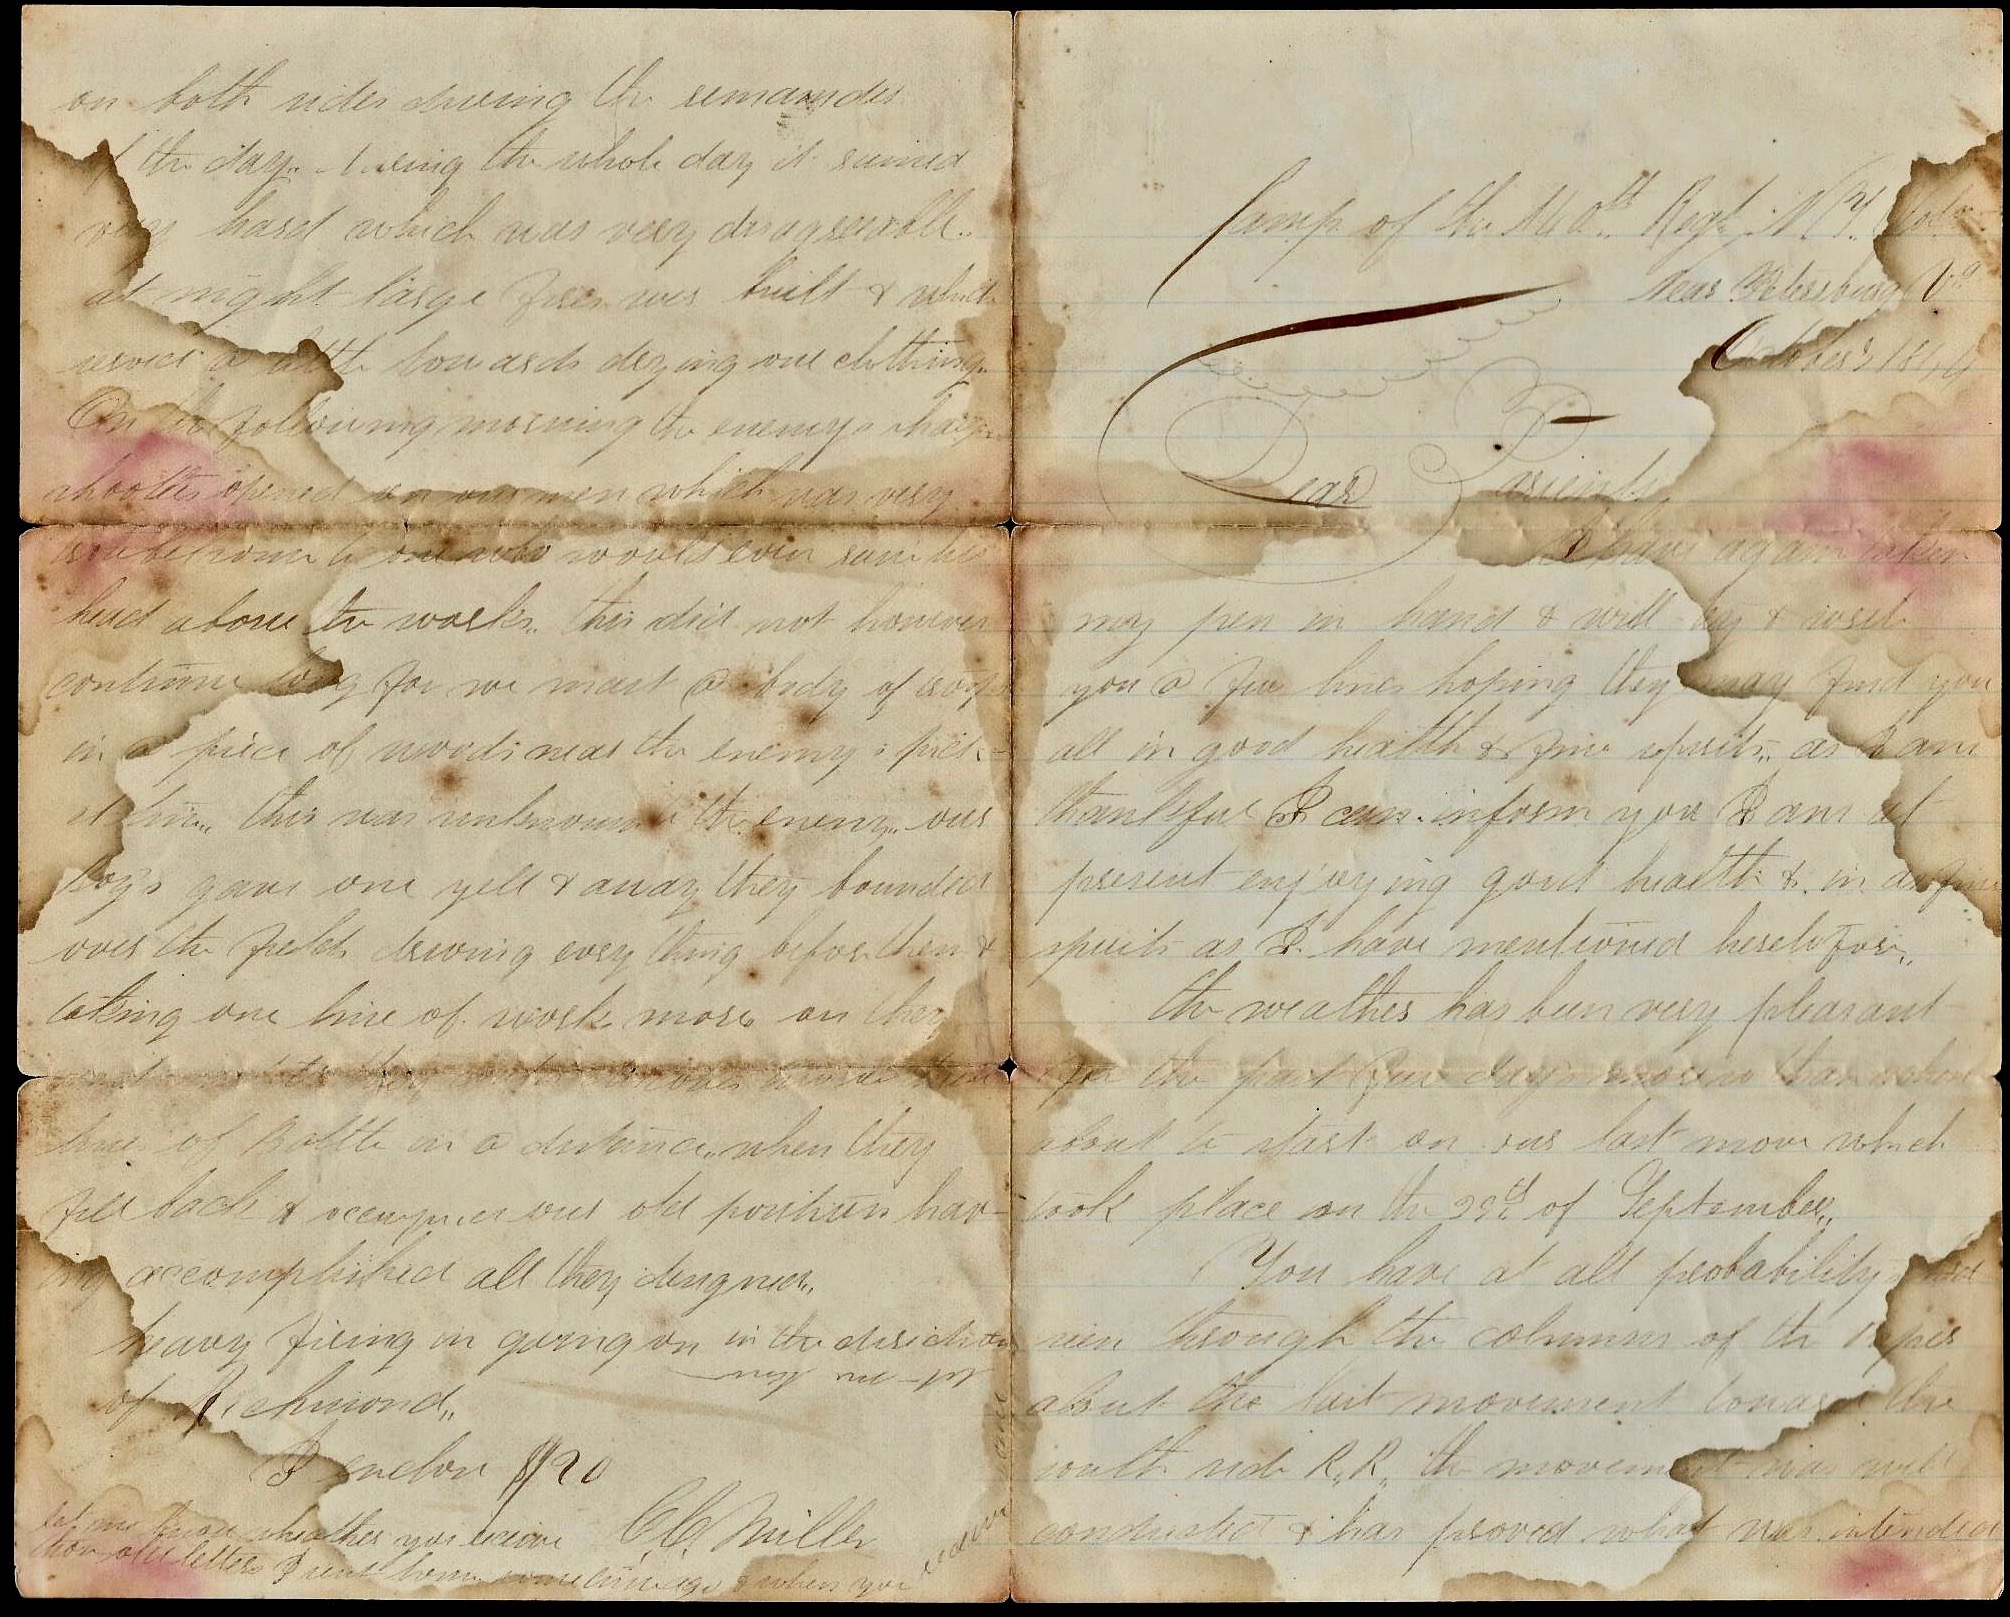 Camp of the 140th Regt N.Y. Vols
Near Petersburg Va
October 9 1864
Dear Parients
I have again taken
my pen in hand & will try & write
you a few lines hoping they may find you
all in good health & fine spirits,, as I am
thankful I can inform you I am at
present enjoying good health & in as fine
spirits as I have mentioned heretofore,,
the weather has been very pleasant
for the past few days more so than when
about to start on our last move which
took place on the of September,,
You have at all probability
seen through the columns of the papers
about the last movement toward the
south side R.R. the movement was well
conducted & has proved what was intended
on both sides during the remainder
of the day.. During the whole day it rained
very hard which was very disagreeable..
at night large fires wer built & which
served a little towards drying our clothing.
On the following morning the enemys sharp
shooters opened on our men which was very
to one who would even raise his
head above the works,, this did not however
continue long for we mast a body of troops
in a piece of woods near the enemy's pick-
et line,, this was unknown to the enemy,, our
boys gave one yell & away they bounded
over the field driving every thing before them &
taking one line of works more on they
line of Battle in a distance,, when they
fell back & occupied our old position hav-
ing accomplished all they designed,,
heavy firing in going on in the direction
of Richmond,,
I enclose $20
C.C. Miller
let me know whether you receive
those old letters I sent home some time ago & when you